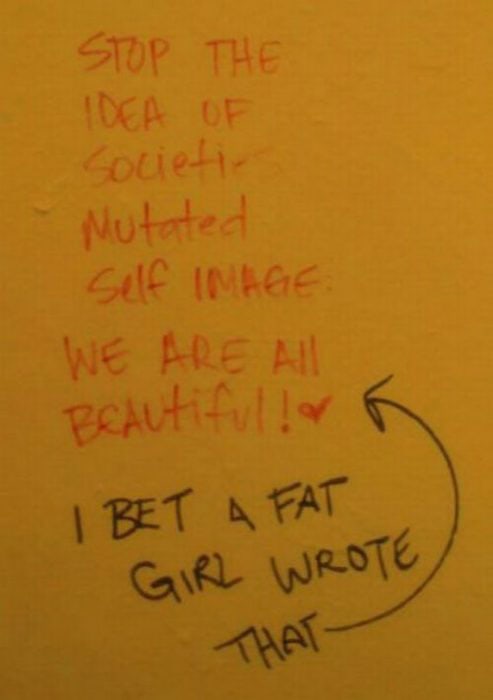 STOP THE
IDEA OF
Mutated
Self IMAGE.
WE ARE All
BEAUtiful! ♥
I BET A FAT
GIRL WROTE
THAT